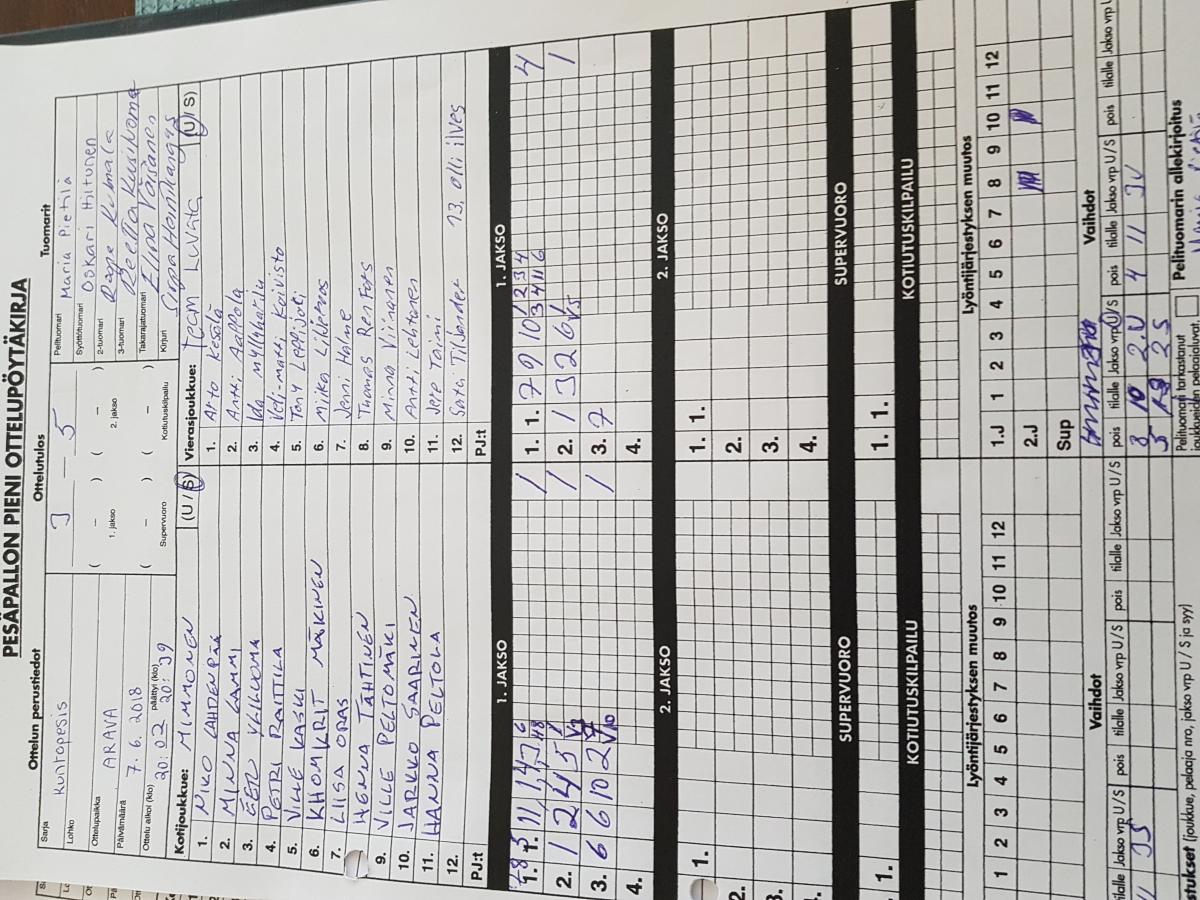 PESÄPALLON PIENI OTTELUPÖYTÄKIRJA
Ottelun perustiedot
Ottelutulos
Tuomarit
Sarja
Kuntopesis
Lohko
Ottelupaikka
ARAVA
Päivämäärä
7. 6. 2018
Ottelu alkoi (klo) 20:02 päättyi (klo) 20:39
3 — 5
( – ) ( – )
1. jakso 2. jakso
( – ) ( – )
Supervuoro Kotiutuskilpailu
Pelituomari Maria Pietilä
Syöttötuomari Oskari Hiltunen
2-tuomari
3-tuomari
Takarajatuomari Elina Väisänen
Kirjuri
Kotijoukkue: MIMMONEN (U / S)
1. NIKO LAHDENPÄÄ
2. MINNA LAMMI
3. EELI YLILUOMA
4. PETRI RAITTILA
5. VILLE KASKI
6. KHOMKRIT MÄKINEN
7. LIISA ORAS
HENNA TÄHTINEN
9. VILLE PELTOMÄKI
10. JARKKO SAARINEN
11. HANNA PELTOLA
12.
PJ:t
Vierasjoukkue: Team Luvata (U / S)
1. Arto Kesälä
2. Antti Aaltola
3. Ida Myllyharju
4. Veli-Matti Koivisto
5. Tony Leppijoki
6. Miika Liljeroos
7. Jenni Halme
8. Tuomas Renfors
9. Minna Viinanen
10. Antti Lehtonen
11. Jere Toimi
12. Satu Tilander 13. Olli ilves
PJ:t
1. JAKSO
1. 1. 11 1 4 7 6 1
2. 1 2 4 5 1
3. 6 6 10 2 1
4.
1. JAKSO
1. 1. 7 9 10 1 2 3 4 4
3 4 11 6
2. 1 3 2 6 1 1
V5
3. 7
4.
2. JAKSO
1.
2.
3.
4.
2. JAKSO
1. 1.
2.
3.
4.
SUPERVUORO
1.
SUPERVUORO
1. 1.
KOTIUTUSKILPAILU
KOTIUTUSKILPAILU
Lyöntijärjestyksen muutos
1 2 3 4 5 6 7 8 9 10 11 12
Lyöntijärjestyksen muutos
1.J 1 2 3 4 5 6 7 8 9 10 11 12
2.J
Sup
Vaihdot
tilalle Jakso vrp U/S pois tilalle Jakso vrp U/S pois tilalle Jakso vrp U/S
Vaihdot
pois tilalle Jakso vrp U/S pois tilalle Jakso vrp U/S pois tilalle Jakso vrp U
3 10 2.U 4 11 3U
Pelituomari tarkastanut joukkueiden pelaajaluvat.
Pelituomarin allekirjoitus
stukset (joukkue, pelaaja nro, jakso vrp U / S ja syy)